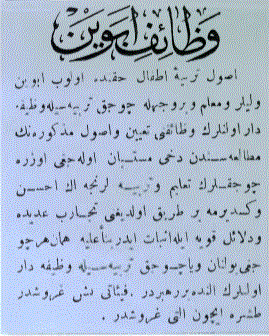 وظائف ابوین
اصول تربیهٔ اطفال حقنده اولوب ابوین
ولیلر ومعلم وبروجهله چوجق تربیه‌سیله وظیفه
دار اولنلرك وظائفنی تعیین واصول مذکوره‌نك
مطالعه‌سندن دخی مستبان اوله‌جغی اوزره
چوجقلرك تعلیم وتربیه لرنجه اك احسن
وکسدیرمه بر طریق اولدیغی تجارب عدیده
ودلائل قویه ایله اثبات ایدر رسالهٔ علیه هان هر چو
جغی بولنان ویا چوجق تربیه‌سیله وظیفه دار
اولنلرك النده بر رهبردر . فیئاتی بش غروشدر
طشره ایچون التی غروشدر .